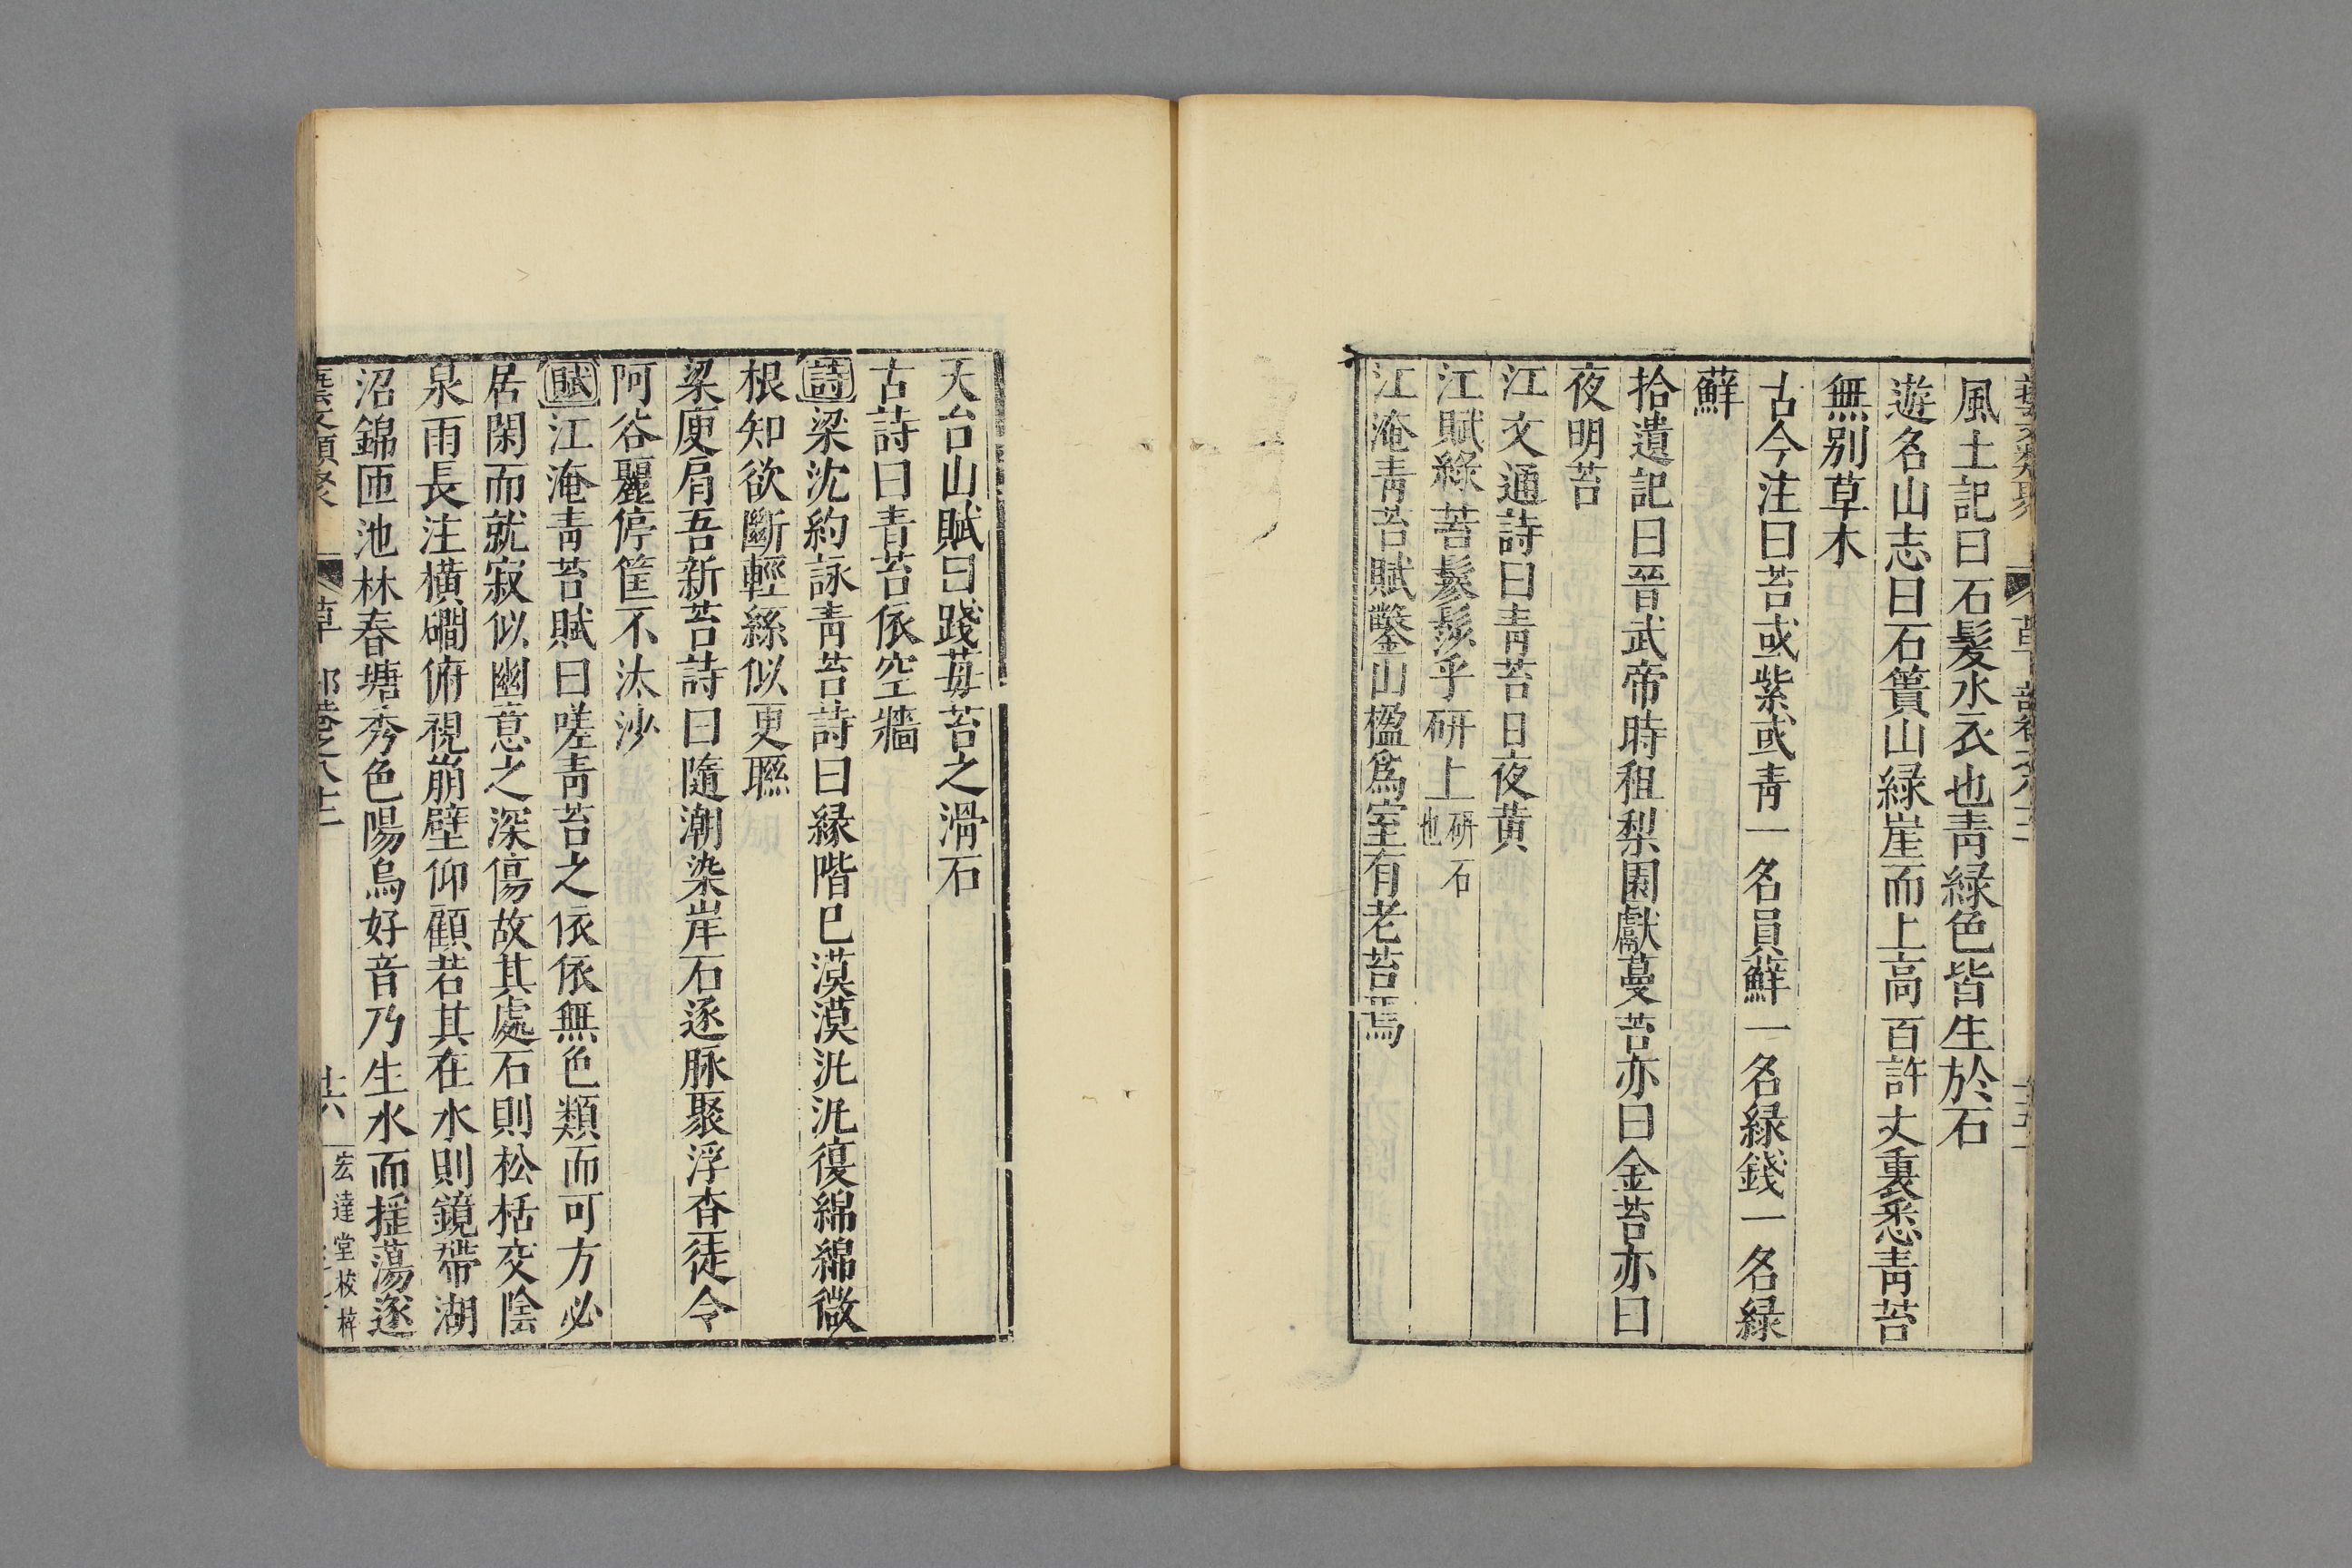 風土記曰石髮水衣也青緑色皆生於石
遊名山志曰石簣山緑崖而上高百許丈裏悉青苔
無别草木
古今注曰苔或紫或青一名員蘚一名緑錢一名緑
蘚
拾遺記曰晉武帝時祖梨園獻蔓苔亦曰金苔亦曰
夜明苔
江文通詩曰青苔日夜黄
江賦綠苔鬖髿乎研上研石也
江淹青苔賦鑿山楹爲室有老苔焉
天台山賦曰踐莓苔之滑石
古詩曰青苔依空牆
詩梁沈約詠青苔詩曰縁階巳漠漠汎汎復綿綿微
根知欲斷輕絲似更聮
梁庾肩吾新苔詩曰隨潮染岸石逐脉聚浮査徒令
阿谷麗停筐不汰沙
賦江淹青苔賦曰嗟青苔之依依無色類而可方必
居閑而就寂似幽意之深傷故其處石則松栝交陰
泉雨長注横磵俯視崩壁仰顧若其在水則鏡帶湖
沼錦匝池林春塘秀色陽烏好音乃生水而揺蕩遂
草 卷之八十二
宏達堂校梓